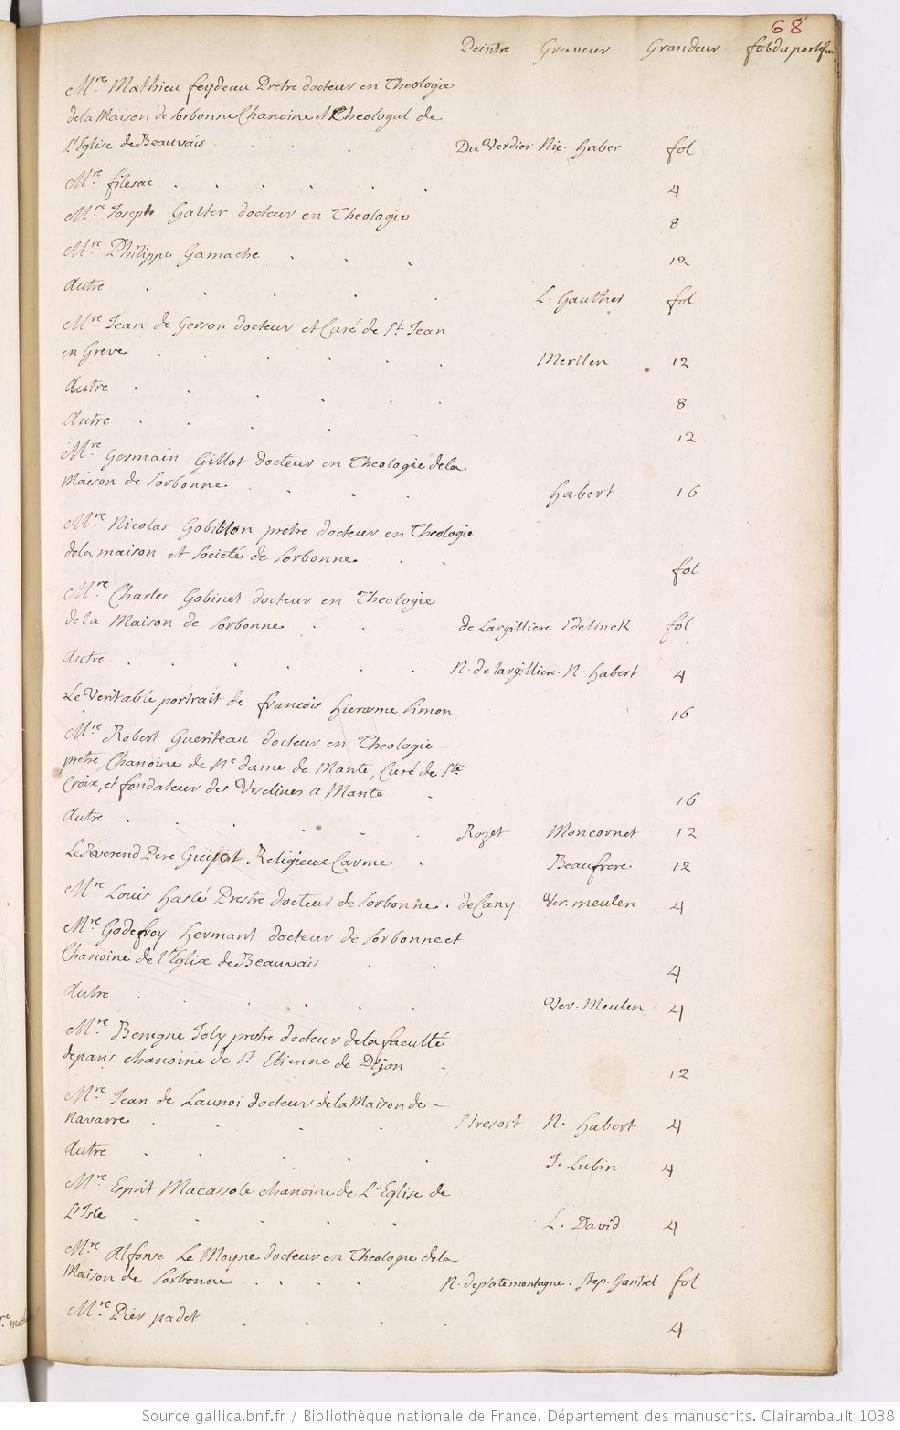 68
Peintre Graveur Grandeur fol du portefeu
Mre Mathieu feydeau Pretre docteur en Theologie
dela Maison de Sorbonne Chanoine et Theologal de
L'Eglise de Beauvais Du Verdier Nic. Haber fol
Mre filesac 4
Mre Joseph Galter docteur en Theologie 8
Mre Philippe Gamache 12
Autre L. Gauthier fol
Mre Jean de Gerson docteur et Curé de St Jean
en Greve Merllen 12
Autre 8
Autre 12
Mre Germain Gillot docteur en Theologie dela
Maison de Sorbonne Habert 16
Mre Nicolas Gobillon prêtre docteur en Theologie
dela maison et Societé de Sorbonne fol
Mre Charles Gobinet docteur en Theologie
de la Maison de Sorbonne de Largilliere Edelinck fol
Autre N. de largilliere N Habert 4
Le Veritable portrait de francois Hierosme Simon 16
Mre Robert Gueriteau docteur en Theologie
pretre Chanoine de Ne dame de Mante, Curé de Ste
Croix, et fondateur des Urselines a Mante 16
Autre Rozet Moncornet 12
Le Reverend Pere Religieux Carme Beaufrere 12
Mre Louis Haslé Prestre docteur de Sorbonne de Cany Ver. meulen 4
Mre Godefroy Hermant docteur de Sorbonne et
Chanoine de l'Eglise de Beauvais 4
Autre Ver. Meulen 4
Mre Benigne Joly pretre docteur de la faculté
de paris chanoine de St Etienne de Dijon 12
Mre Jean de Launoi docteur dela Maison de
Navarre Stresort N. Habert 4
Autre J. Lubin 4
Mre Esprit Macassole chanoine de L'Eglise de
L'Isle L. David 4
Mre Alfonse Le Moyne docteur en Theologie dela
Maison de Sorbonne N. deplatemontagne. Step. Gantrel fol
Mre Pier padet 4
Source gallica.bnf.fr / Bibliothèque nationale de France. Département des manuscrits. Clairambault 1038